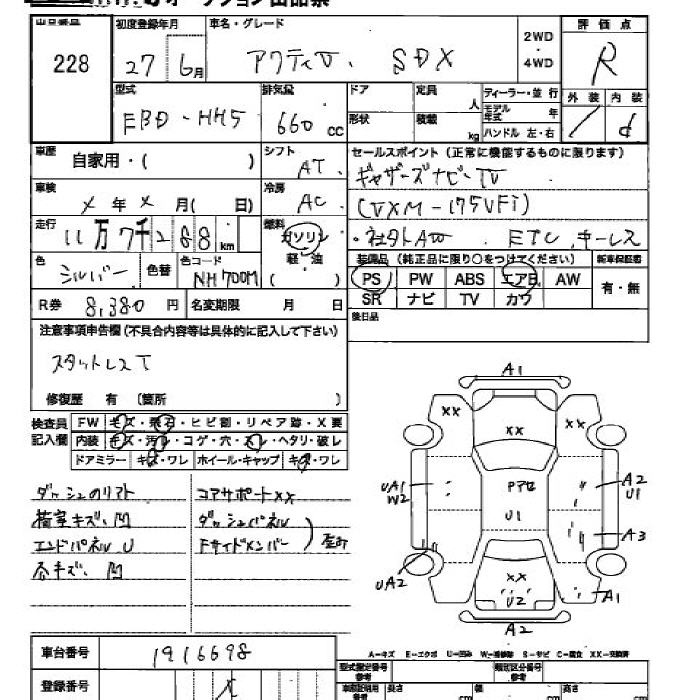 オークション出品票
出品番号 初度登録年月 車名・グレード 2WD・4WD 評価点
228 27年6月 アクティV. SDX R
型式 排気量 ドア 定員 人 ディーラー・並行 外装 内装
EBD-HH5 660cc 形状 積載 kg モデル年式 年 ハンドル 左・右 / d
車歴 自家用・( ) シフト AT セールスポイント(正常に機能するものに限ります)
車検 メ年メ月( 日) 冷房 AC ギャザーズナビ-TV
(VXM-175VFi)
走行 11万7千288km 燃料 ガソリン 軽・油 ( ) ・社外AW ETC.キーレス
色 シルバー 色替 色コード NH700M
装備品(純正品に限り○をつけてください) 新車保証書
PS PW ABS エアB AW 有・無
SR ナビ TV カワ
R券 8,380円 名変期限 月 日
後日品
注意事項申告欄(不具合内容等は具体的に記入して下さい)
スタットレスT
修復歴 有 〔箇所 〕
検査員記入欄 FW キズ・飛石・ヒビ割・リペア跡・X要
内装 キズ・汚レ・コゲ・穴・スレ・ヘタリ・破レ
ドアミラー キズ・ワレ ホイール・キャップ キズ・ワレ
コアサポートXX
荷室キズ、凹 ダッシュパネル
エンドパネルU Fサイドメンバー
各キズ、凹
A1
XX XX
XX
UA1
W2
Pアセ
A2
U1
U1
A3
UA2
XX
U2
A1
A2
車台番号 1916698
A-キズ E-エクボ U-凹み W-補修跡 S-サビ C-腐食 XX-交換済
登録番号
型式指定番号 参考 類別区分番号 参考
車庫証明用 参考 長さ cm 幅 cm 高さ cm